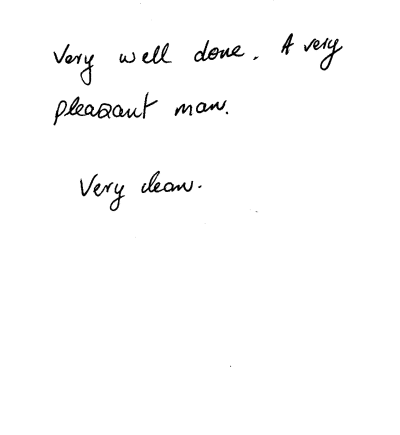 Very well done. A very
pleasant man.
Very clean.